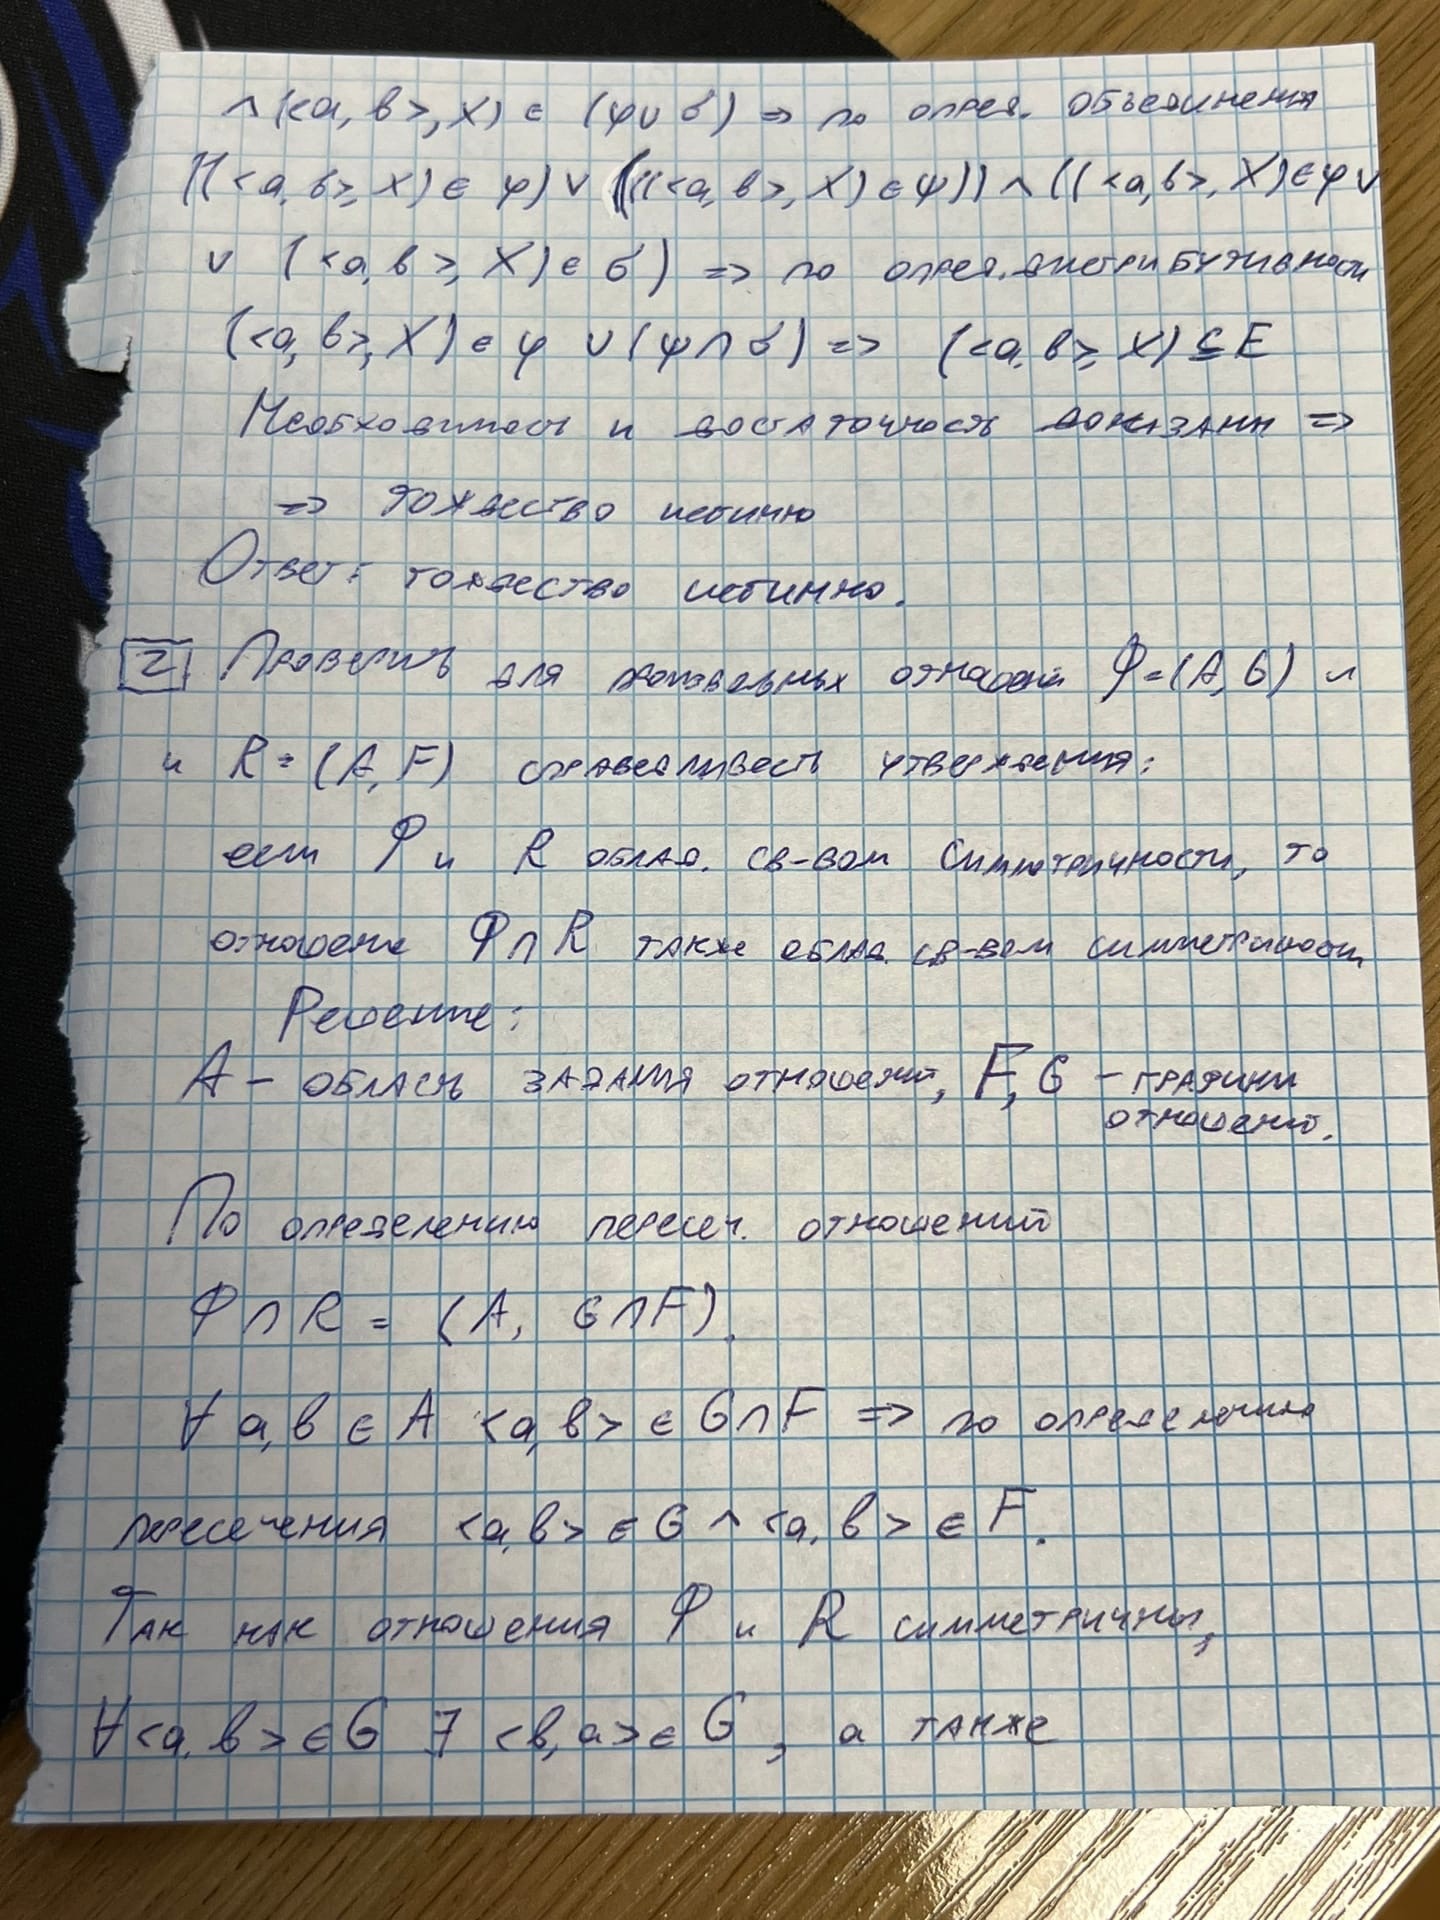 ∧ (<a, b>, X) ∈ (φ∪σ) ⇒ по опред. объединения
((<a, b>, X) ∈ φ) ∨ (((<a, b>, X) ∈ ψ)) ∧ ((<a, b>, X) ∈ φ ∨
∨ (<a, b>, X) ∈ σ) ⇒ по опред. дистрибутивности
(<a, b>, X) ∈ φ ∪ (ψ ∩ σ) ⇒ (<a, b>, X) ⊆ E
Необходимость и достаточность доказаны ⇒
⇒ тождество истинно
Ответ: тождество истинно.
2. Проверить для произвольных отношений Φ = (A, G) и
и R = (A, F) справедливость утверждения:
если Φ и R облад. св-вом симметричности, то
отношение Φ ∩ R также облад. св-вом симметричности
Решение:
A – область задания отношений, F, G – графики
отношений.
По определению пересеч. отношений
Φ ∩ R = (A, G ∩ F).
∀ a, b ∈ A <a, b> ∈ G ∩ F ⇒ по определению
пересечения <a, b> ∈ G ∧ <a, b> ∈ F.
Так как отношения Φ и R симметричны,
∀ <a, b> ∈ G ∃ <b, a> ∈ G, а также